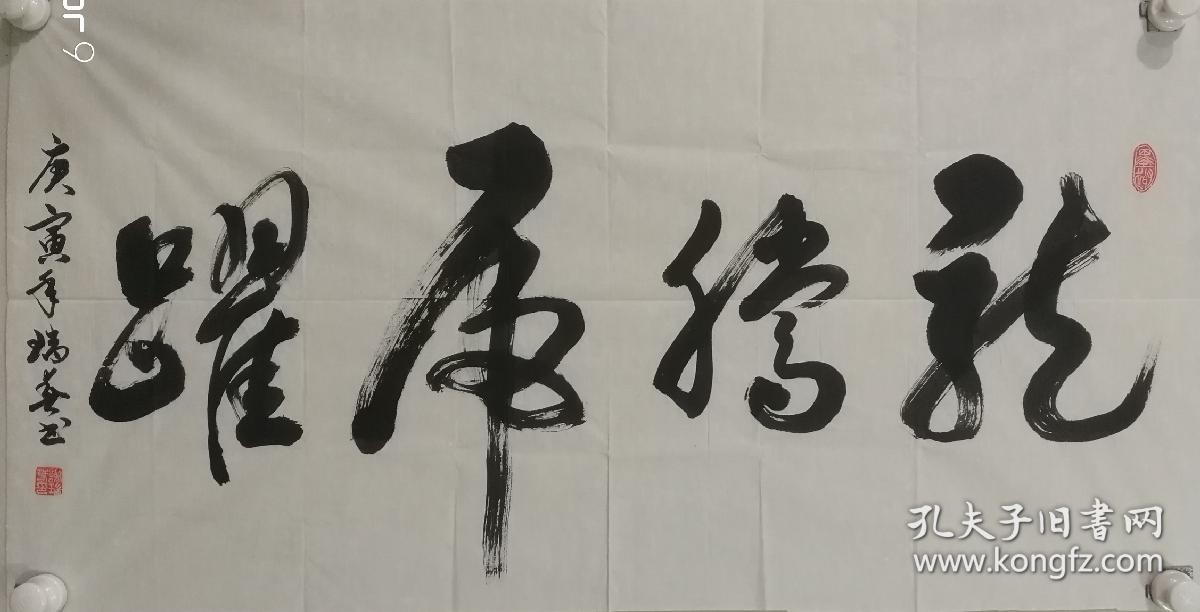 龍騰虎躍
庚寅年瑞春书
or 9
孔夫子旧書网
www.kongfz.com